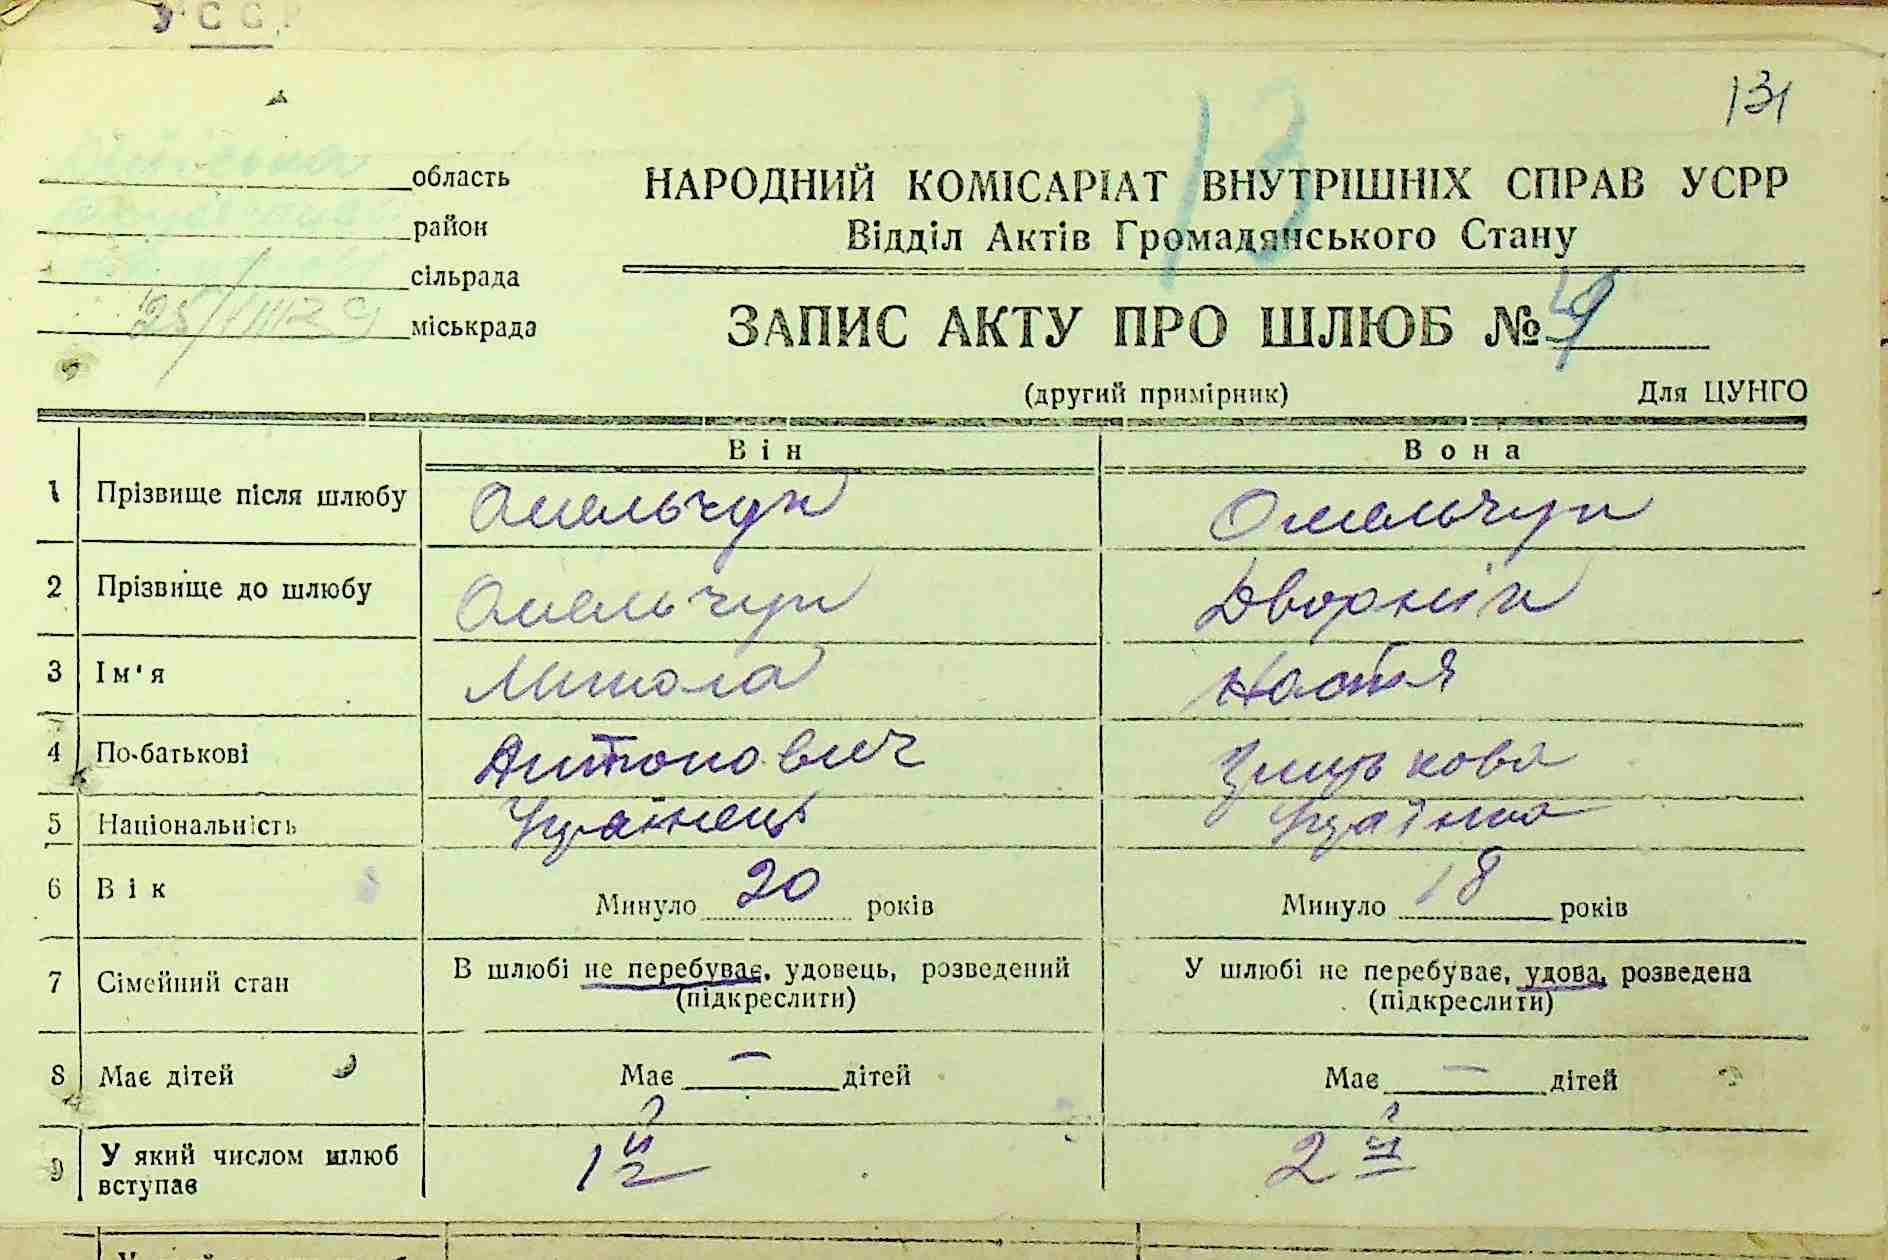 УССР
131
13
область
район
сільрада
міськрада
НАРОДНИЙ КОМІСАРІАТ ВНУТРІШНІХ СПРАВ УСРР
Відділ Актів Громадянського Стану
ЗАПИС АКТУ ПРО ШЛЮБ №
(другий примірник) Для ЦУНГО
Він Вона
1 Прізвище після шлюбу Омельчук Омельчук
2 Прізвище до шлюбу Омельчук Дворнік
3 Ім'я Микола Настя
4 По-батькові Антонович
5 Національність Українець Українка
6 Вік Минуло 20 років Минуло 18 років
7 Сімейний стан В шлюбі не перебуває, удовець, розведений У шлюбі не перебуває, удова, розведена
(підкреслити) (підкреслити)
8 Має дітей Має — дітей Має — дітей
9 У який числом шлюб вступає 1й 2й